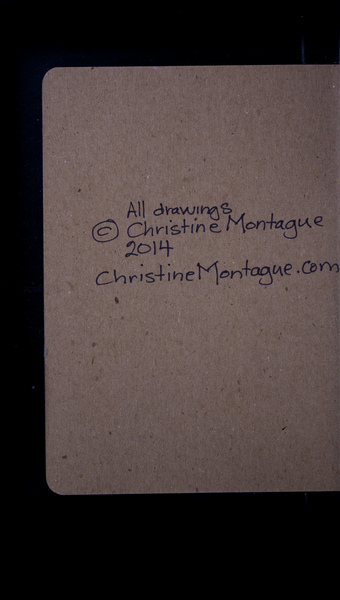 All drawings
© Christine Montague
2014
ChristineMontague.com